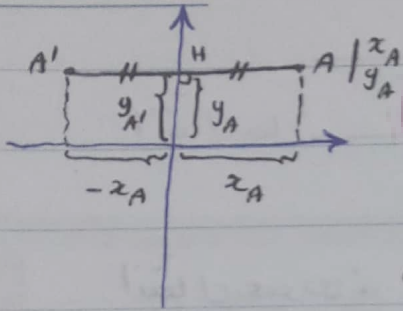 H
A' A | x_A
y_A
y_A' y_A
-x_A x_A